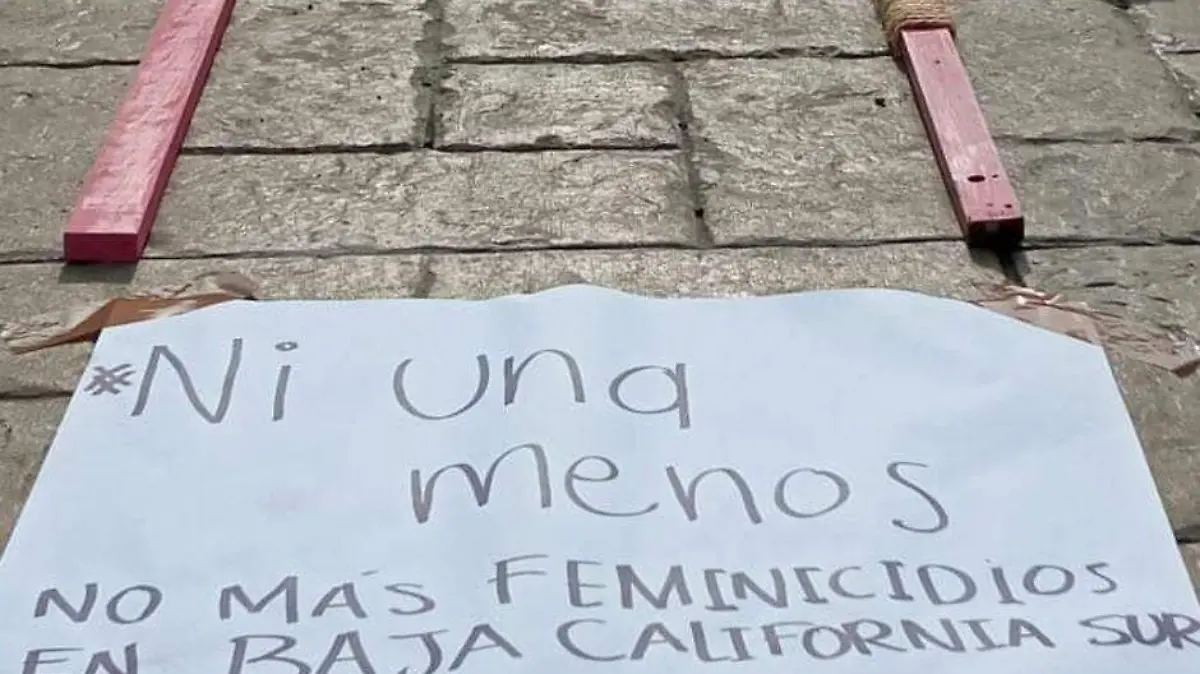 *Ni una
menos
NO MÁS FEMINICIDIOS
EN BAJA CALIFORNIA SUR